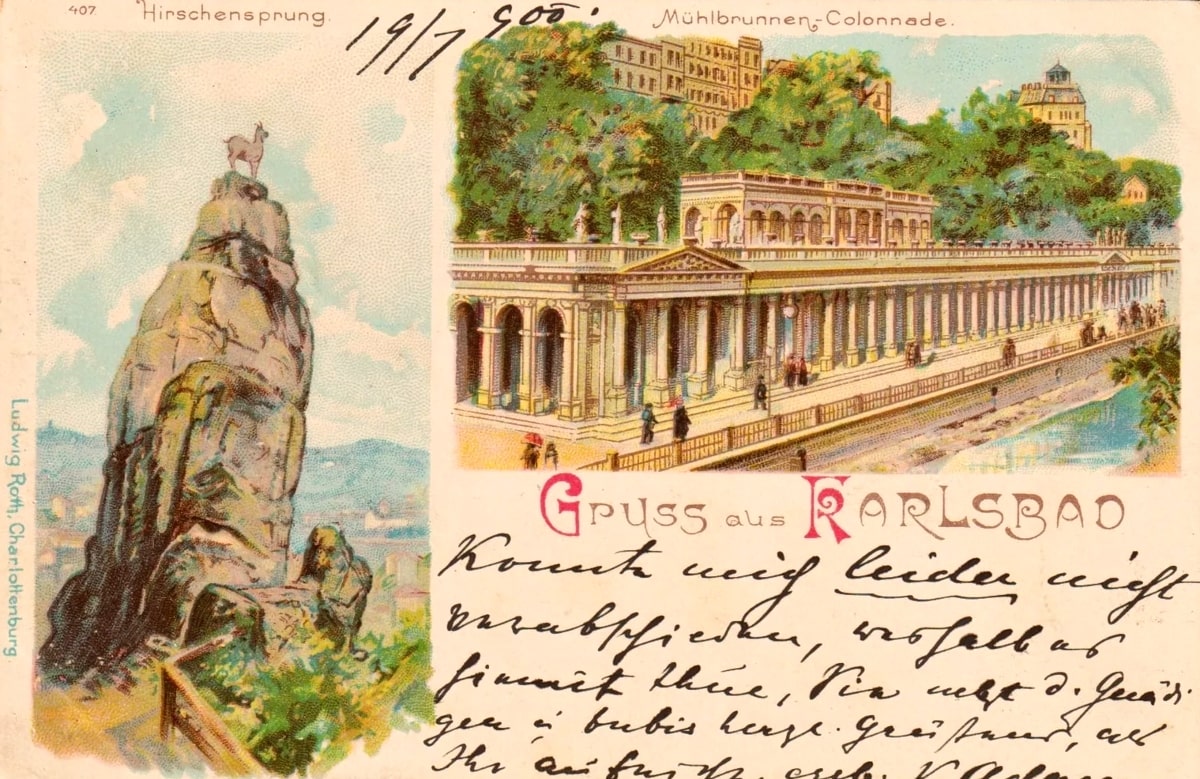 407
Hirschensprung.
19/7 900.
Mühlbrunnen-Colonnade.
Ludwig Roth, Charlottenburg.
Gruss aus Karlsbad
Konnte mich leider nicht
verabschieden, weshalb es
hiemit thue, Sie nebst d. Gnädi
gen u bubis herzl. grüssend, als
Ihr aufricht. ergeb.